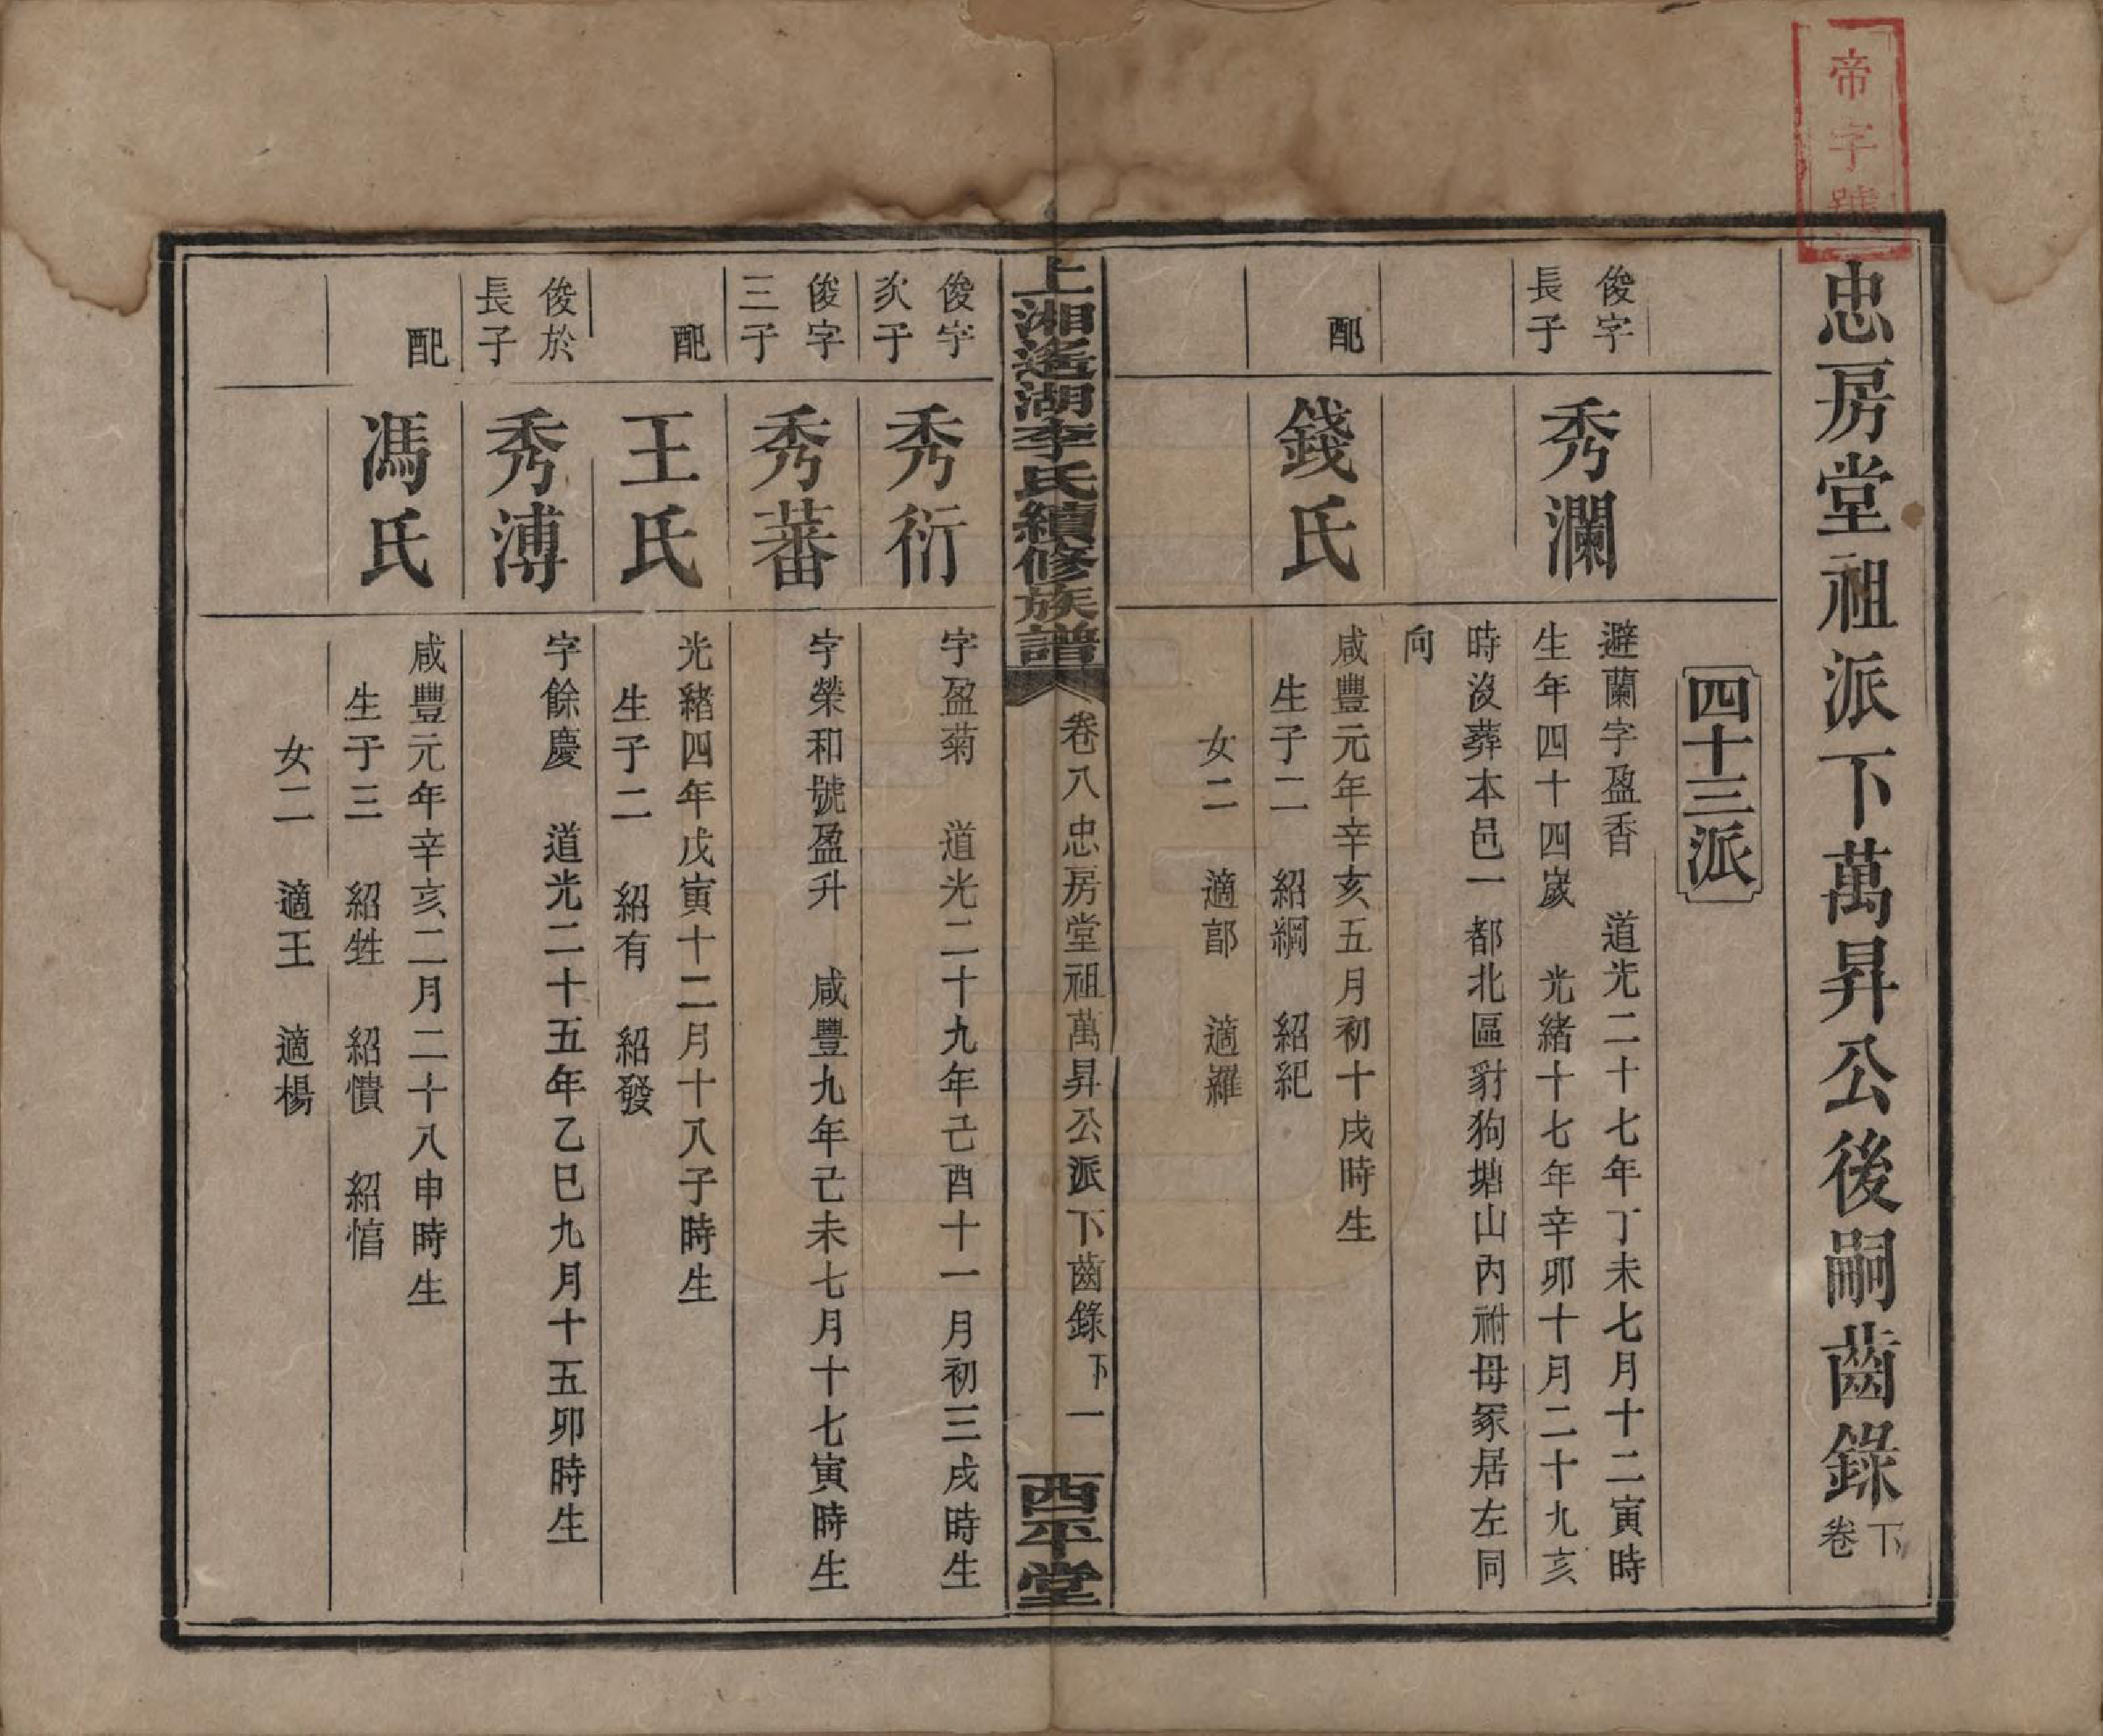 帝字號
忠房堂祖派下萬昇公後嗣齒錄下卷
四十三派
俊字長子
秀瀾
避蘭字盈香　道光二十七年丁未七月十二寅時
生年四十四歲　光緒十七年辛卯十月二十九亥
時沒葬本邑一都北區豺狗塘山內祔母冢居左同
向
配
錢氏
咸豐元年辛亥五月初十戌時生
生子二　紹綱　紹紀
女二　適部　適羅
上湘遙湖李氏續修族譜
卷八忠房堂祖萬昇公派下齒錄下　一
西平堂
俊字次子
秀衍
字盈菊　道光二十九年己酉十一月初三戌時生
俊字三子
秀蕃
字榮和號盈升　咸豐九年己未七月十七寅時生
配
王氏
光緒四年戊寅十二月十八子時生
生子二　紹有　紹發
俊於長子
秀溥
字餘慶　道光二十五年乙巳九月十五卯時生
配
馮氏
咸豐元年辛亥二月二十八申時生
生子三　紹甡　紹憒　紹悎
女二　適王　適楊